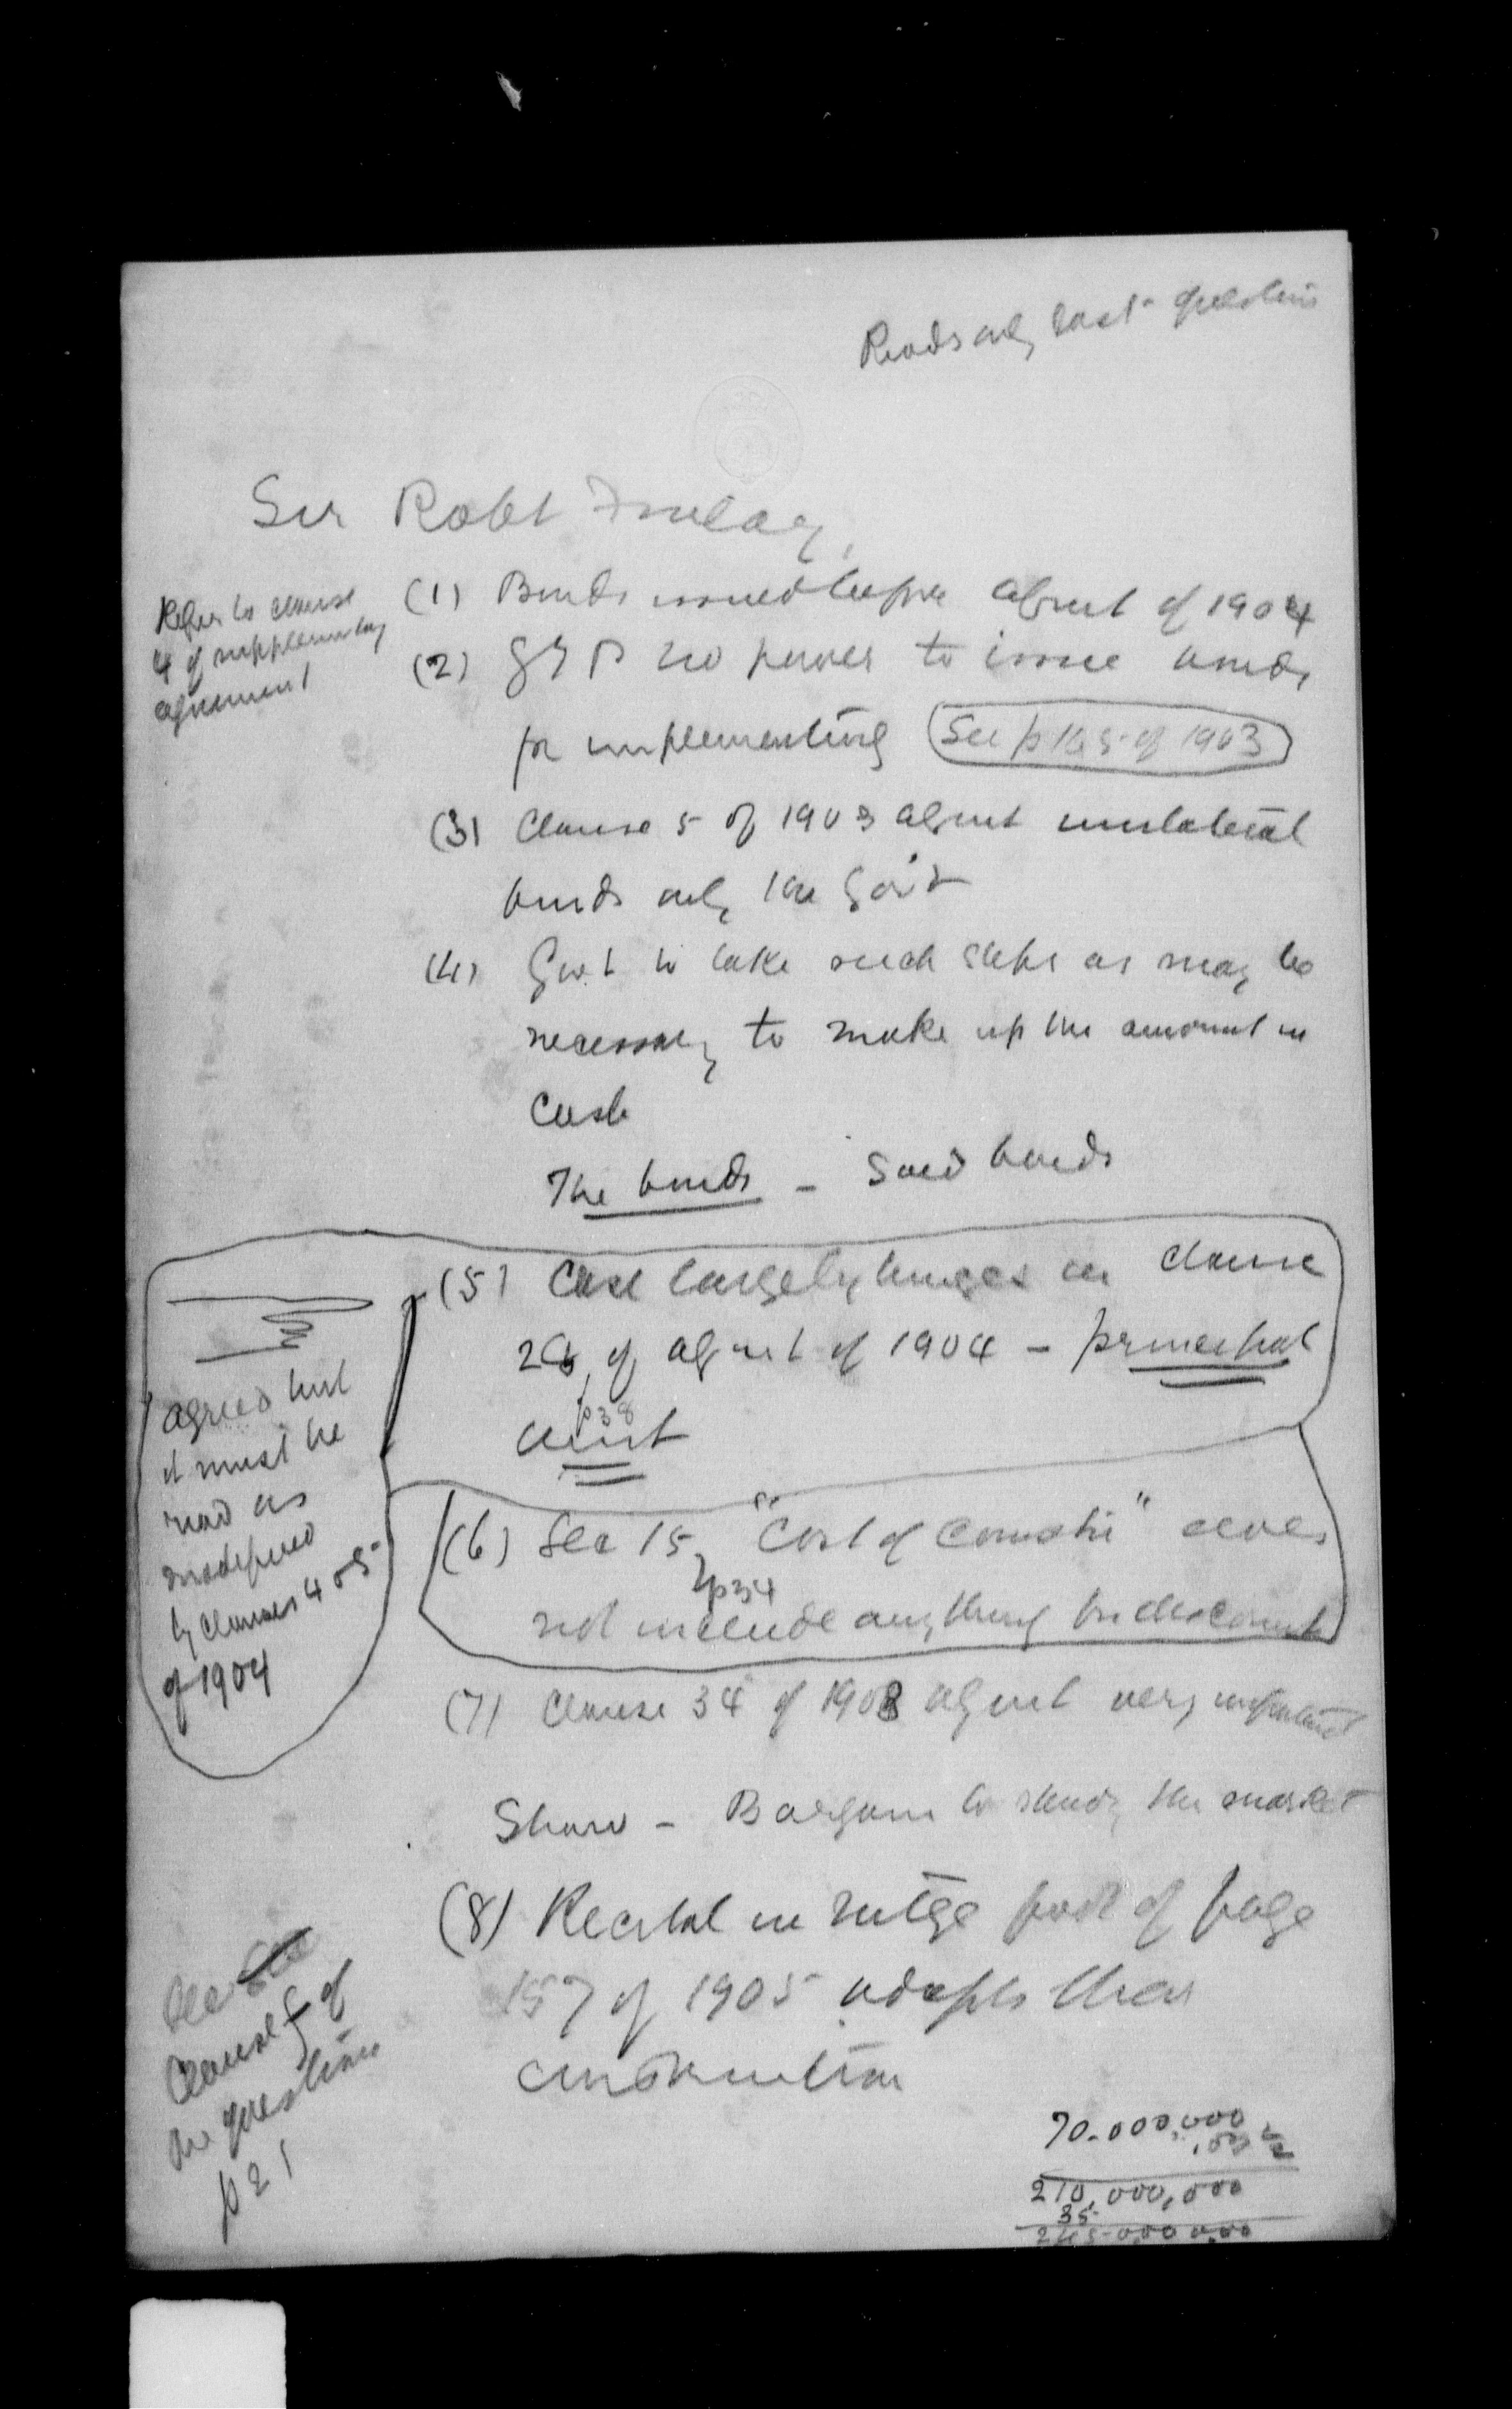 Reads only last question
Sir Robt Finlay
Refers to clause
4 of supplementary
agreement
(1) Bonds issued before agrmt of 1904
(2) G T P no power to issue bonds
for implementing See p 165 of 1903
(3) Clause 5 of 1903 agrmt unilateral
binds only the Gov't
(4) Govt to take such steps as may be
necessary to make up the amount in
cash
The bonds - Said bonds
(5) Case largely hinges on clause
28 of agrmt of 1904 - principal
p38
amt
agreed but
it must be
read as
modified
by clauses 4 & 5
of 1904
(6) Sec 15, "Cost of constn" does
p34
not include anything for discount
(7) Clause 34 of 1903 agrmt very important
Shaw - Bargain to steady the market
(8) Recital in mtge foot of page
157 of 1905 adopts their
construction
See
Clause 5 of
the question
p 21
70.000,000
.03 1/2
210,000,000
35
245 000 000